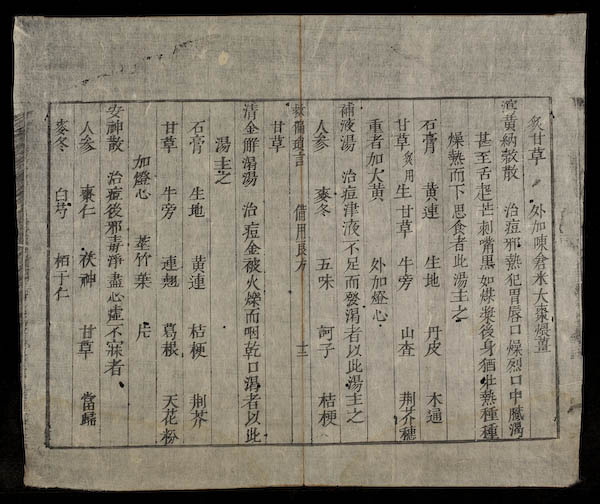 炙甘草 外加陳倉米大棗煨薑
瀉黃納穀散 治痘邪熱犯胃唇口燥烈口中臟渴
甚至舌起芒刺嘴黑如煤漿後身猶壯熱種種
燥熱而下思食者此湯主之
石膏 黃連 生地 丹皮 木通
甘草炙用 生甘草 牛旁 山查 荆芥穗
重者加大黃 外加燈心
補液湯 治痘津液不足而發渴者以此湯主之
人參 麥冬 五味 訶子 桔梗
甘草
救偏瑣言 備用良方 三
清金解渴湯 治痘金被火爍而咽乾口渴者以此
湯主之
石膏 生地 黃連 桔梗 荆芥
甘草 牛旁 連翹 葛根 天花粉
加燈心 莖竹葉 片
安神散 治痘後邪毒淨盡心虛不寐者
人參 棗仁 茯神 甘草 當歸
麥冬 白芍 栢子仁